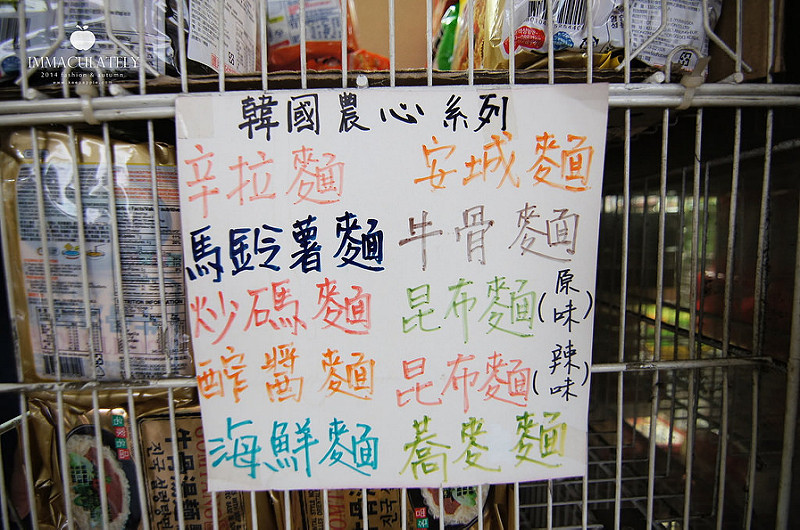 IMMACULATELY
2014 fashion & autumn.
韓國農心系列
辛拉麵 安城麵
馬鈴薯麵 牛骨麵
炒碼麵 昆布麵(原味)
酢醬麵 昆布麵(辣味)
海鮮麵 蕎麥麵